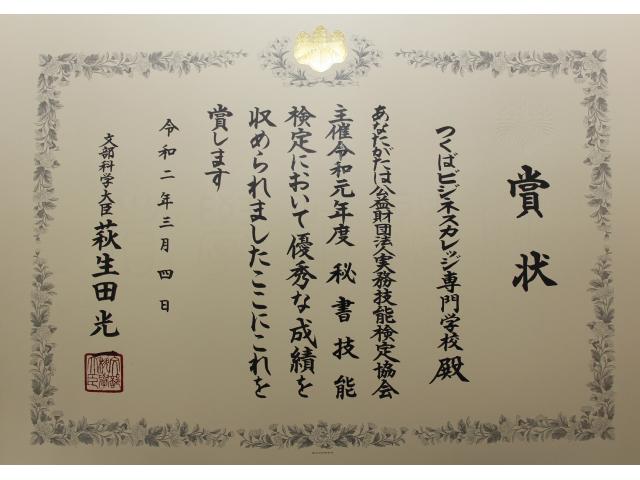 賞状
つくばビジネスカレッジ専門学校 殿
あなたがたは公益財団法人実務技能検定協会
主催令和元年度 秘書技能
検定において優秀な成績を
収められましたここにこれを
賞します
令和二年三月四日
文部科学大臣 萩生田光一